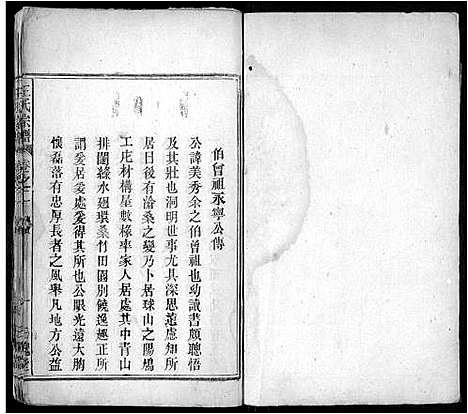 伯曾祖永寧公傳
公諱美秀余之伯曾祖也幼讀書頗聰悟
及其壯也洞明世事尤具深思遠慮知所
居日後有滄桑之變乃卜居球山之陽鳩
工庀材構屋數椽率家人居處其中青山
排闥綠水廻環桑竹田園別饒逸趣正所
謂爰居爰處爰得其所也公眼光遠大胸
懷磊落有忠厚長者之風舉凡地方公益
王氏宗譜